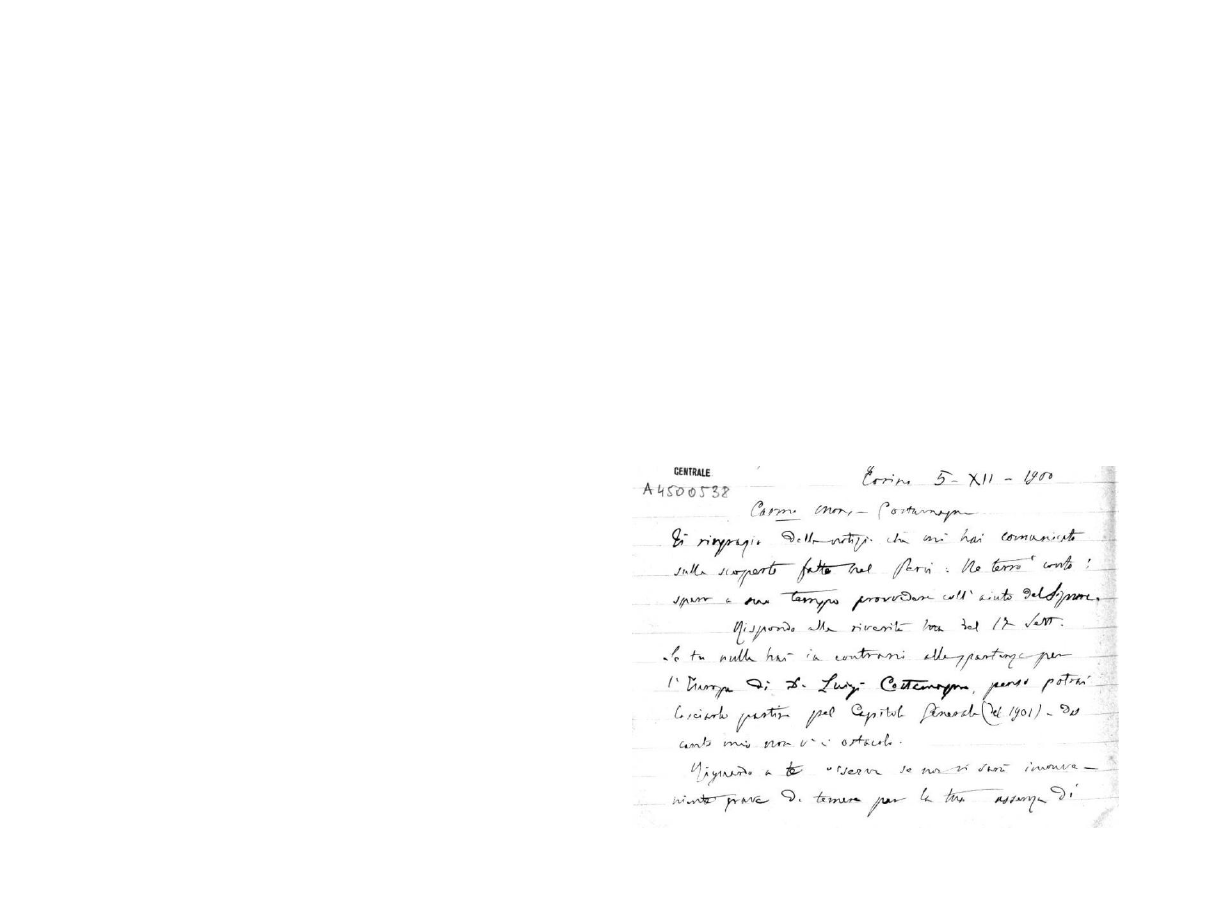 CENTRALE
A4500538
Torino 5-XII-1900
Carmo Mons. Costamagna
Ti ringrazio delle notizie che mi hai comunicato
sulla scoperta fatta nel Perù. Ne terrò conto:
spero a suo tempo provvedere coll'aiuto del Signore.
Rispondo alla riverita tua del 17 Sett.
Se tu nulla hai in contrario alla partenza per
l'Europa di D. Luigi Costamagna, penso potrai
lasciarlo partire pel Capitolo Generale (del 1901) - Dal
canto mio non v'è ostacolo.
Riguardo a te osserva se non vi sarà inconve-
niente grave da temere per la tua assenza di